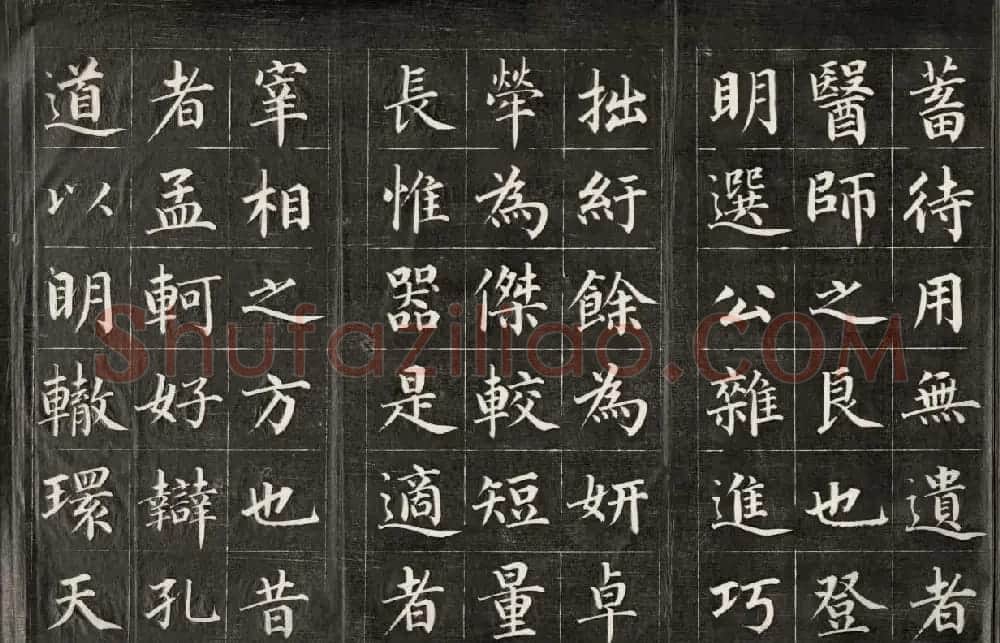 蓄待用無遺者
醫師之良也登
明選公雜進巧
拙紆餘為妍卓
犖為傑較短量
長惟器是適者
宰相之方也昔
者孟軻好辯孔
道以明轍環天
Shufaziliao.COM